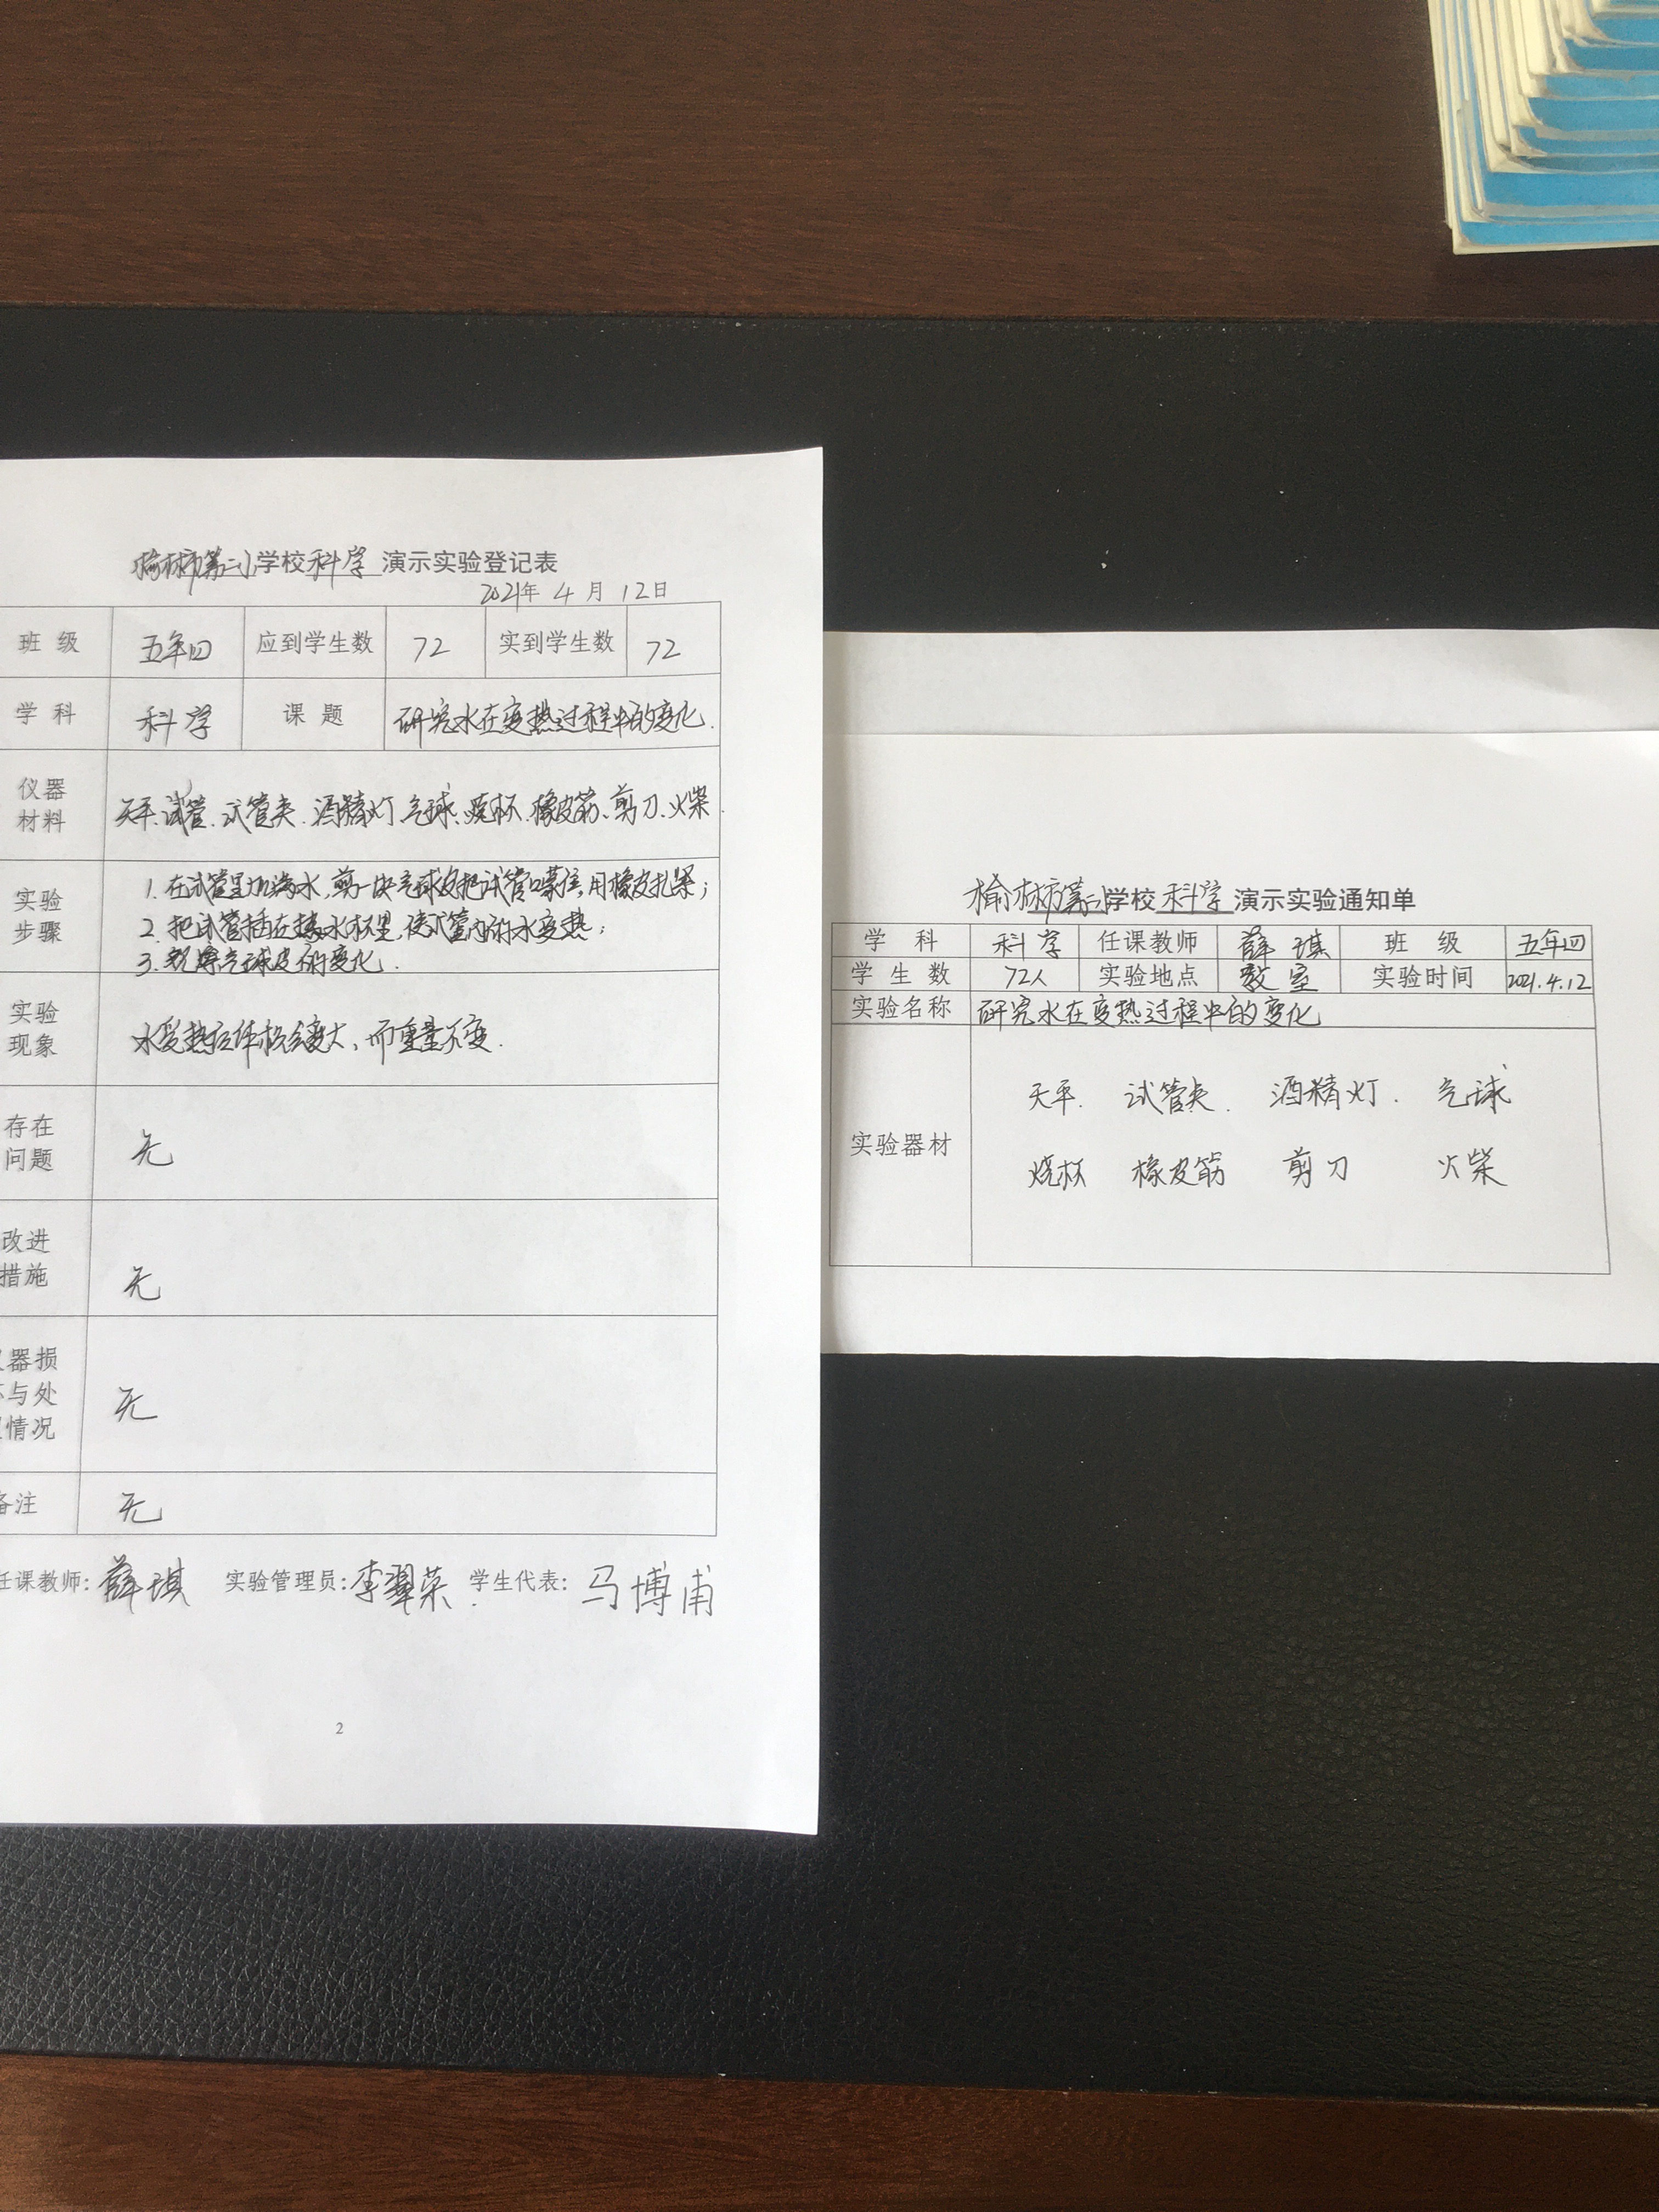 榆林市第二小学校科学 演示实验登记表
2021年 4 月 12日
班 级 五年四 应到学生数 72 实到学生数 72
学 科 科学 课 题 研究水在变热过程中的变化.
仪器
材料
天平、试管、试管夹、酒精灯、气球、烧杯、橡皮筋、剪刀、火柴.
实验
步骤
1. 在试管里加满水,剪一块气球皮把试管口蒙住,用橡皮扎紧;
2. 把试管插在热水杯里,使试管内的水变热;
3. 观察气球皮的变化.
实验
现象
水受热后体积会变大,而重量不变.
存在
问题
无
改进
措施
无
器损
与处
情况
无
备注 无
任课教师: 薛琪 实验管理员: 李翠荣. 学生代表: 马博甫
2
榆林市第二小学校 科学 演示实验通知单
学 科 科学 任课教师 薛琪 班 级 五年四
学 生 数 72人 实验地点 教室 实验时间 2021.4.12
实验名称 研究水在变热过程中的变化
实验器材
天平. 试管夹. 酒精灯. 气球
烧杯 橡皮筋 剪刀 火柴